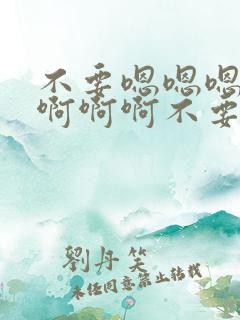 不要嗯嗯嗯
啊啊啊不要
劉丹笑
未经同意禁止转载